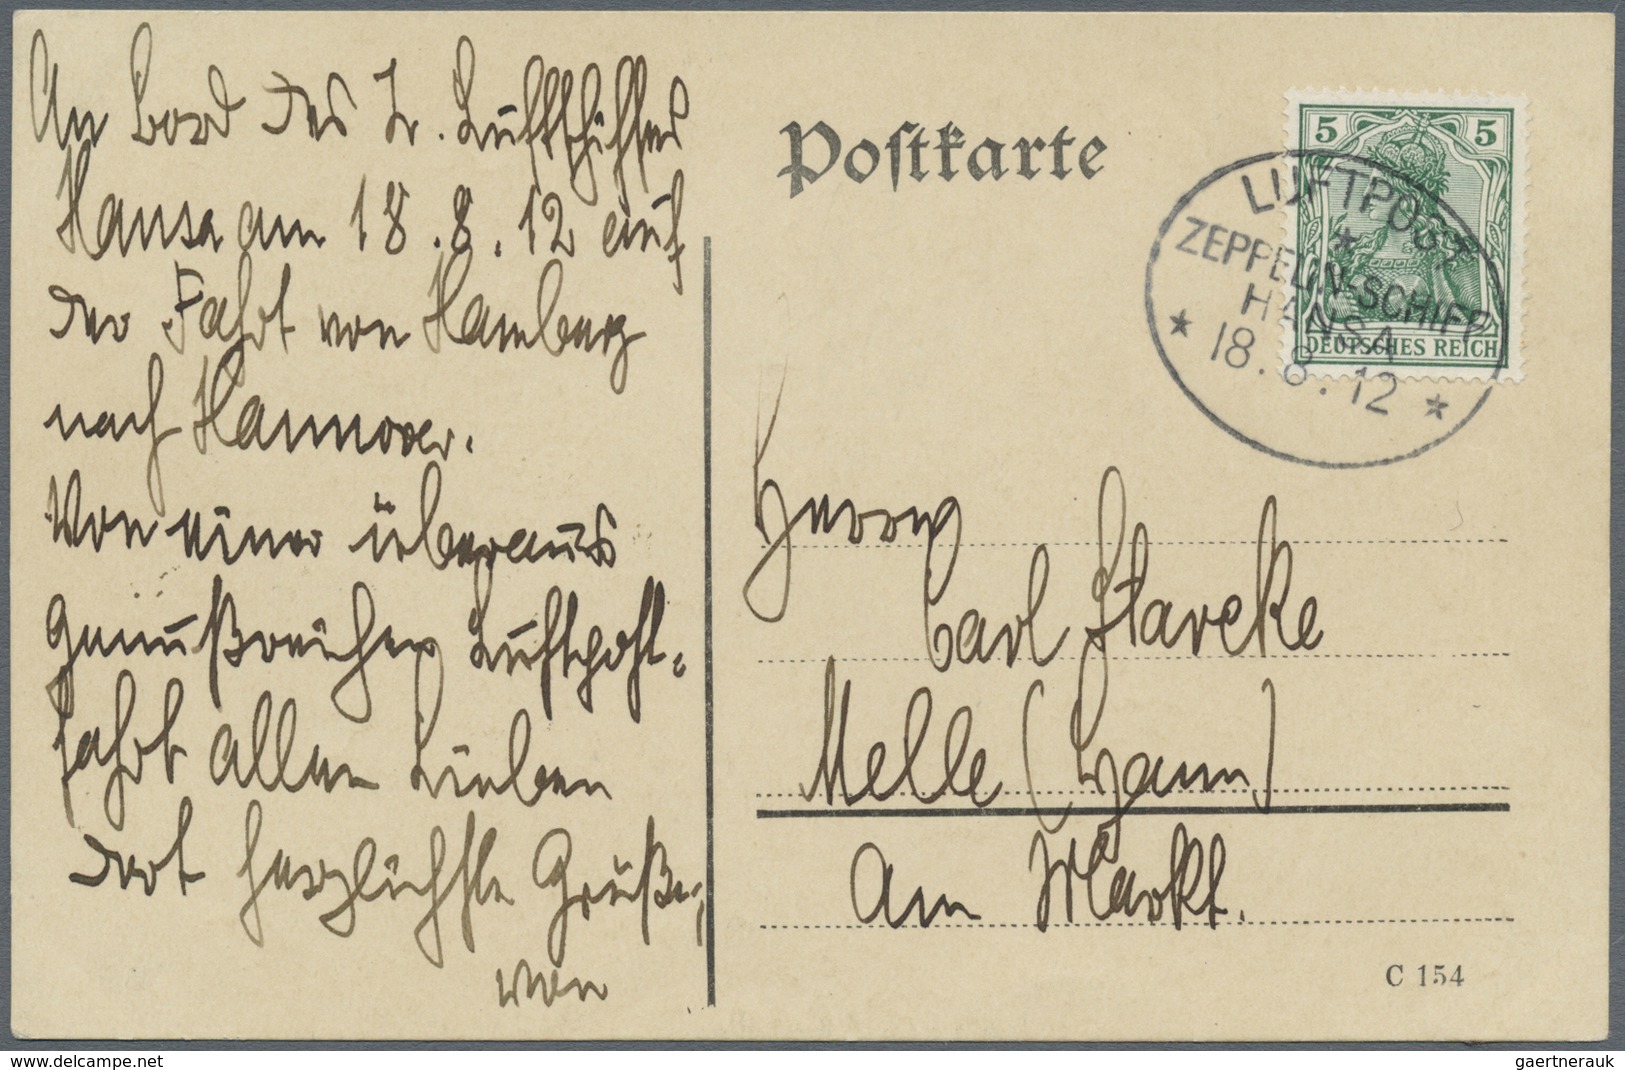 An Bord des Z. Luftschiffes
Hansa am 18.8.12 auf
der Fahrt von Hamburg
nach Hannover.
Von einer überaus
genußreichen Luftpost-
fahrt allen Lieben
dort herzlichste Grüße,
von
Postkarte
5 5
DEUTSCHES REICH
LUFTPOST
*
ZEPPELIN-SCHIFF
HANSA
* 18.8.12 *
Herrn
Carl Starcke
Melle (Hann)
Am Markt.
C 154
delcampe.net
gaertnerauk